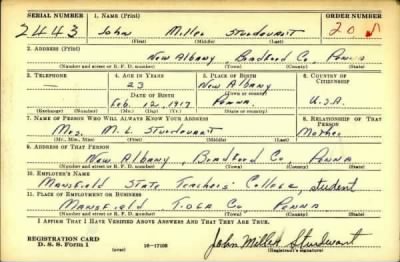 SERIAL NUMBER 1. NAME (Print) ORDER NUMBER
2443 John Miller Sturdevant 20
(First) (Middle) (Last)
2. ADDRESS (Print)
New Albany, Bradford Co, Penna
(Number and street or R. F. D. number) (Town) (County) (State)
3. TELEPHONE 4. AGE IN YEARS 5. PLACE OF BIRTH 6. COUNTRY OF CITIZENSHIP
— 23 New Albany
DATE OF BIRTH (Town or county)
Feb. 12, 1917 Penna. U.S.A.
(Exchange) (Number) (Mo.) (Day) (Yr.) (State or country)
7. NAME OF PERSON WHO WILL ALWAYS KNOW YOUR ADDRESS 8. RELATIONSHIP OF THAT PERSON
Mrs. M. L. Sturdevant Mother
(Mr., Mrs., Miss) (First) (Middle) (Last)
9. ADDRESS OF THAT PERSON
New Albany, Bradford Co Penna
(Number and street or R. F. D. number) (Town) (County) (State)
10. EMPLOYER'S NAME
Mansfield State Teachers' College, student
11. PLACE OF EMPLOYMENT OR BUSINESS
Mansfield Tioga Co Penna
(Number and street or R. F. D. number) (Town) (County) (State)
I AFFIRM THAT I HAVE VERIFIED ABOVE ANSWERS AND THAT THEY ARE TRUE.
REGISTRATION CARD
D. S. S. Form 1 (over) 16—17105 John Miller Sturdevant
(Registrant's signature)